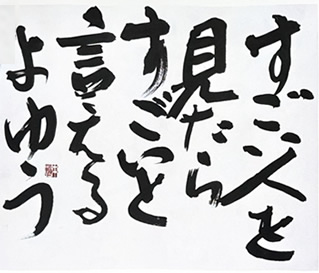 すごい人を
見たら
すごいと
言える
よゆう